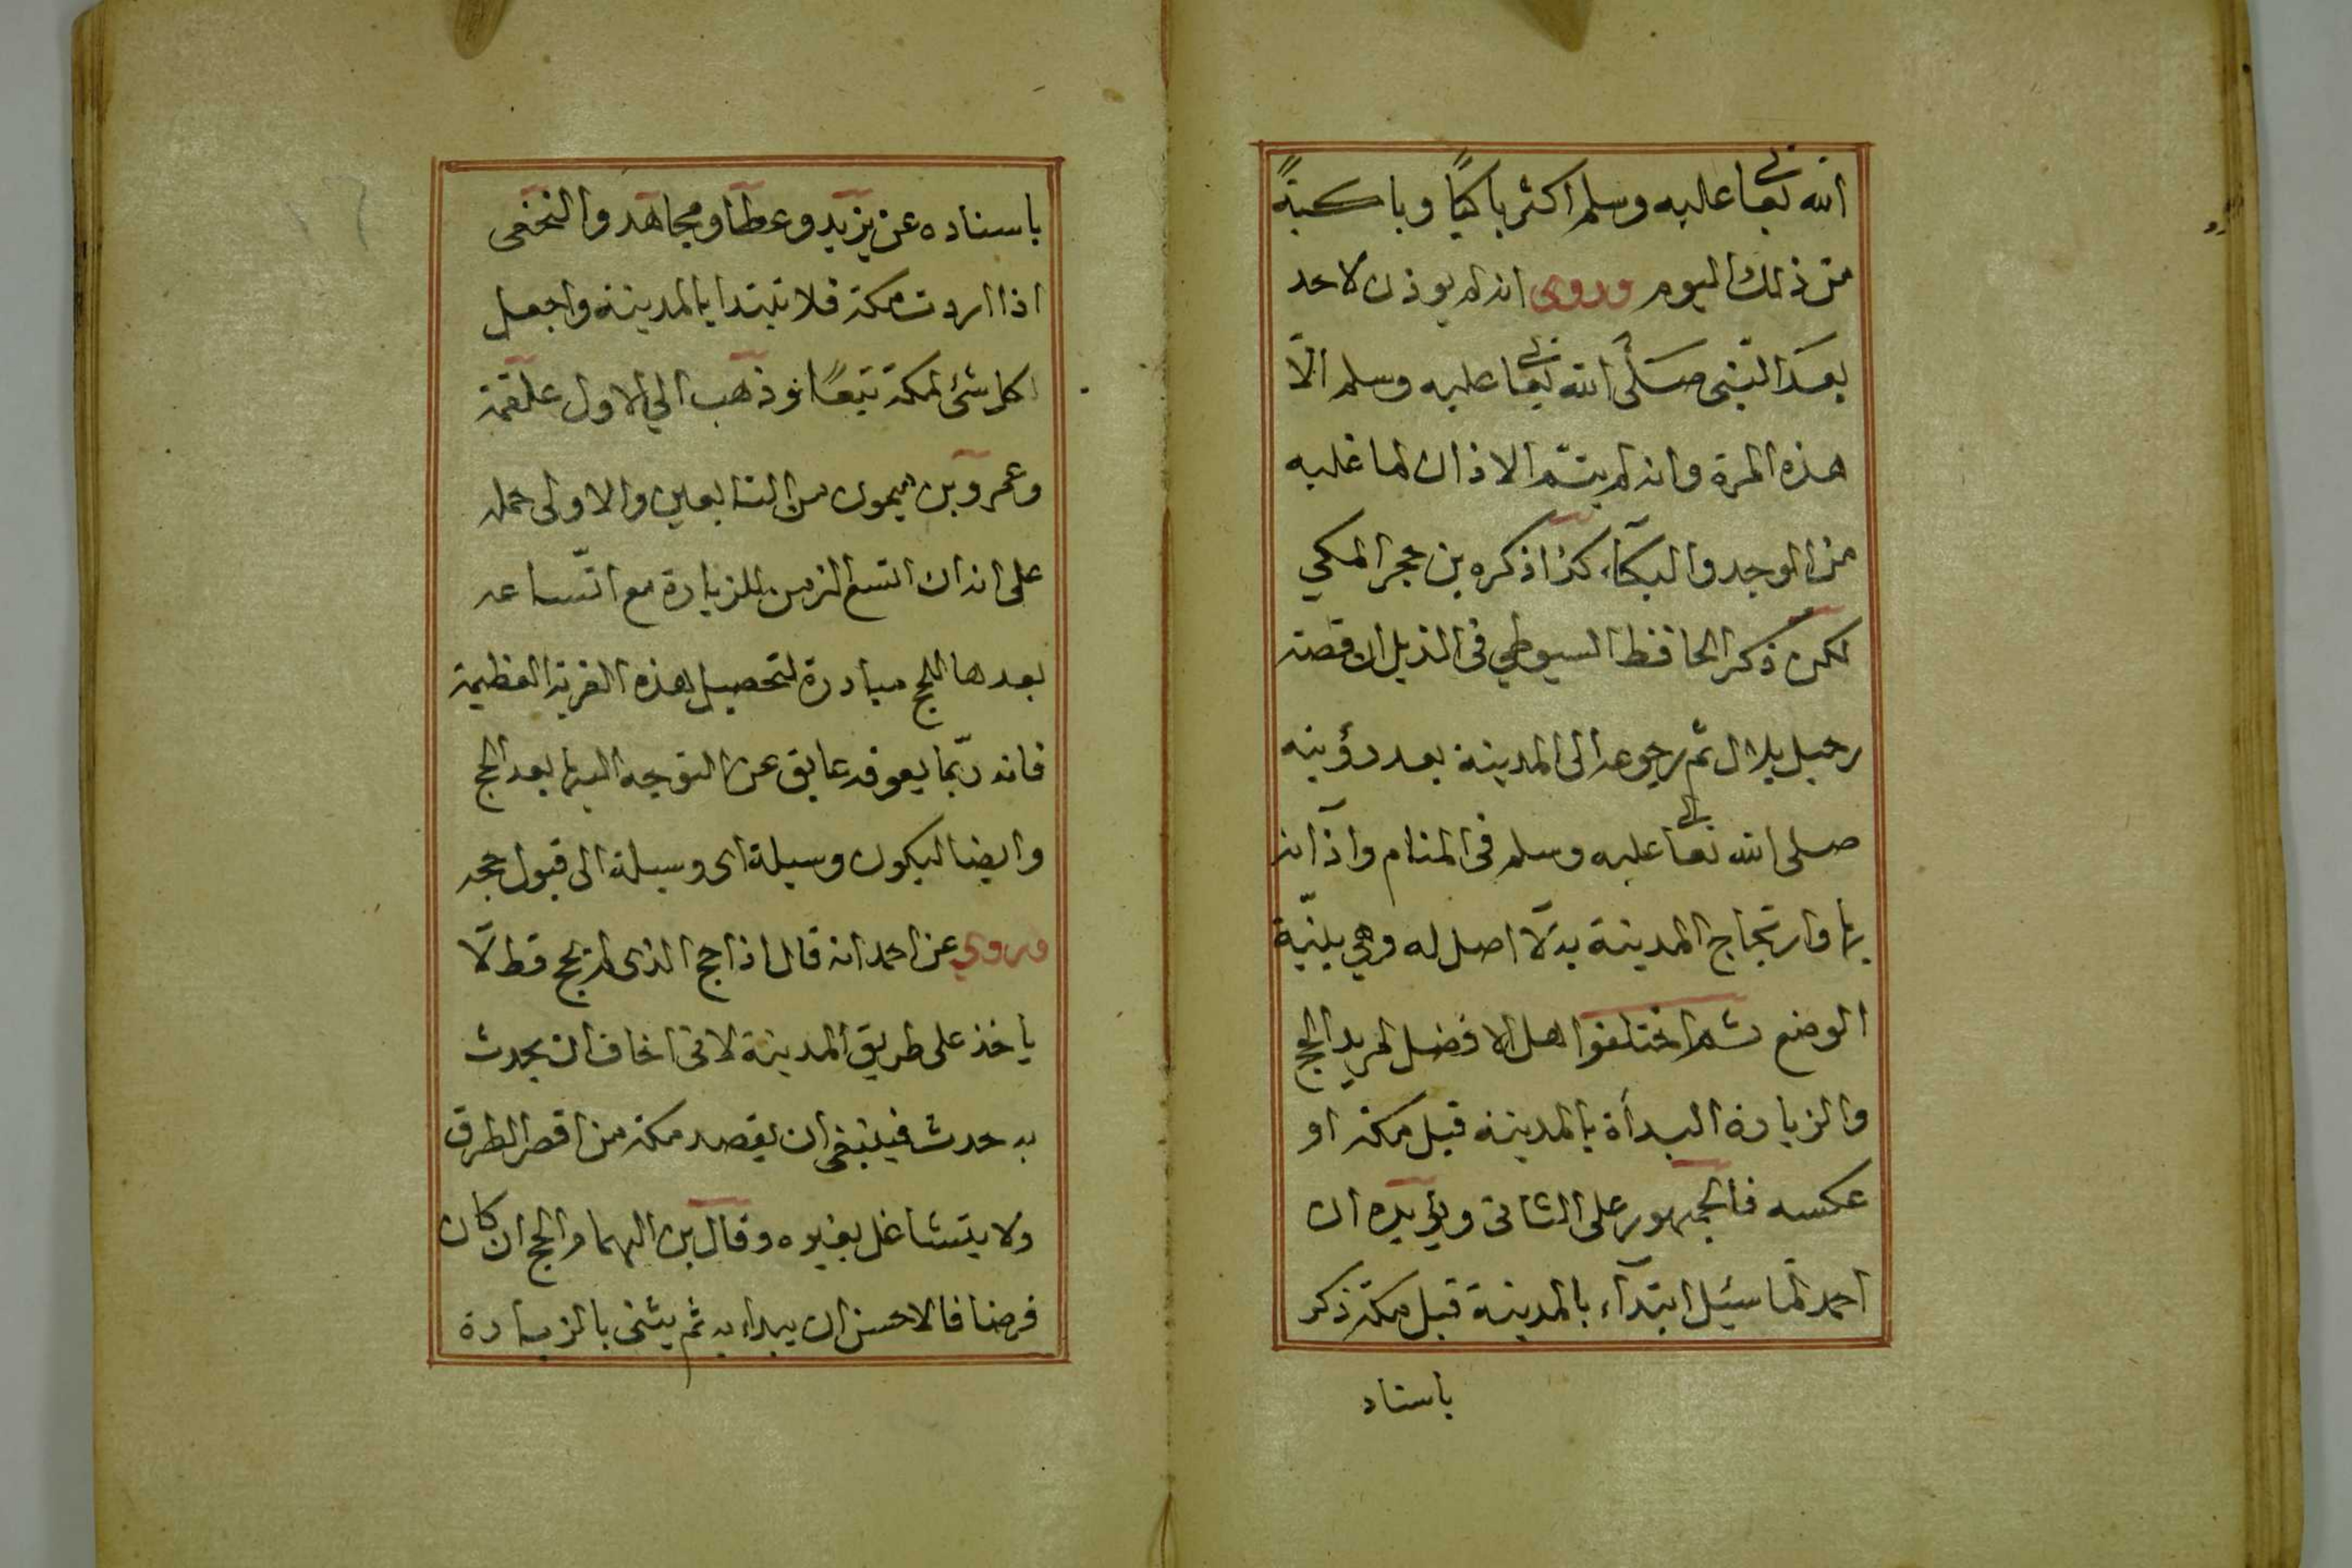 الله تعالى عليه وسلم اكثر باكيًا وباكيةً
من ذلك اليوم وروى انه لم يوذن لاحد
بعد النبى صَلَّى الله تعالى عليه وسلم الّا
هذه المرة وانه لم يتم الاذان لما غلبه
من الوجد والبكآء كذا ذكره بن حجر المكي
لكن ذكر الحافظ السيوطي فى الذيل ان قصته
رحيل بلال ثم رجوعه الى المدينة بعد رؤيته
صلى الله تعالى عليه وسلم فى المنام واذانه
بها وارتجاج المدينة به لا اصل له وهي بينّة
الوضع ثم اختلفوا هل الافضل لمريد الحج
والزيارة البدأة بالمدينة قبل مكة او
عكسه فالجمهور على الثانى ويؤيده ان
احمد لما سئيل ابتدآء بالمدينة قبل مكة ذكر
باسناد
باسناده عن يزيد وعطا ومجاهد والنخعى
اذا اردت مكة فلا تبتدا بالمدينة واجعل
كل شئ لمكة تبعًا وذهب الي الاول علقمة
وعمرو بن ميمون من التابعين والاولى حمله
على انه ان اتسع الزمن للزيارة مع اتساعه
بعدها للحج مبادرة لتحصيل هذه القربة العظيمة
فانه ربّما يعوقه عايق عن التوجه اليها بعد الحج
وايضا ليكون وسيلة اى وسيلة الى قبول حجه
وروي عن احمد انه قال اذا حج الذى لم يحج قط لا
ياخذ على طريق المدينة لانى اخاف ان يحدث
به حدث فينبغى ان يقصد مكة من اقصر الطرق
ولا يتشاغل بغيره وقال بن الهمام والحج ان كان
فرضا فالاحسن ان يبداء به ثم يثنى بالزيارة